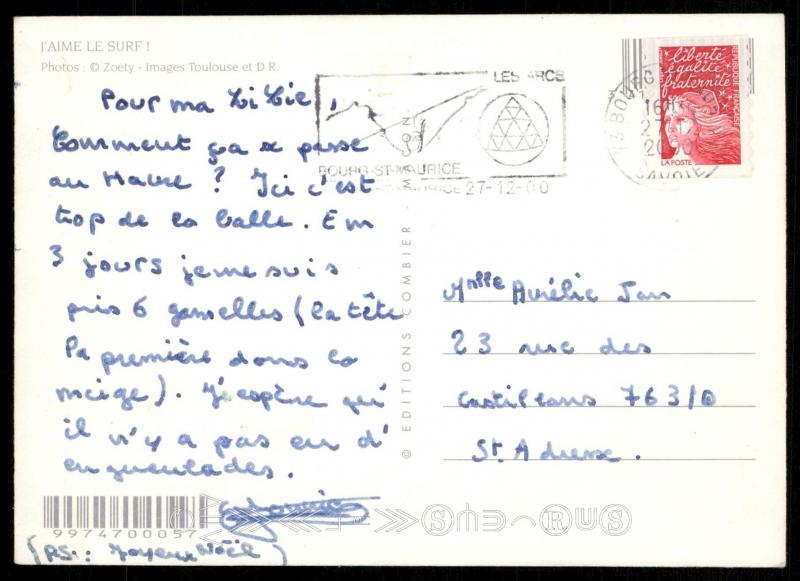 J'AIME LE SURF !
Photos : © Zoety - Images Toulouse et D.R.
Pour ma LiLie,
Comment ça se passe
au Havre ? Ici c'est
trop de la balle. En
3 jours je me suis
pris 6 gamelles (la tête
la première dans la
neige). J'espère qu'
il n'y a pas eu d'
engueulades.
9974700057
(PS : Joyeux Noël)
LES ARCS
BOURG-ST-MAURICE
27-12-00
© EDITIONS COMBIER - MACON
liberté
égalité
fraternité
REPUBLIQUE FRANÇAISE
LA POSTE
73 BOURG
16H
27
2000
SAVOIE
Mlle Aurélie Jan
23 rue des
Castillans 76310
St Adresse.
SURF